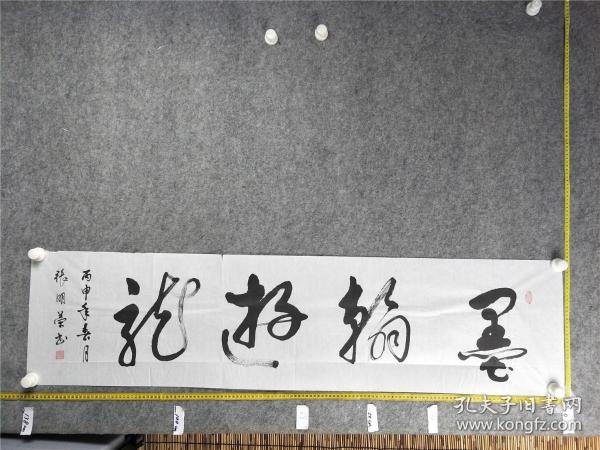 墨翰游龍
丙申年春月
張國榮書
孔夫子旧書网
kongfz.com